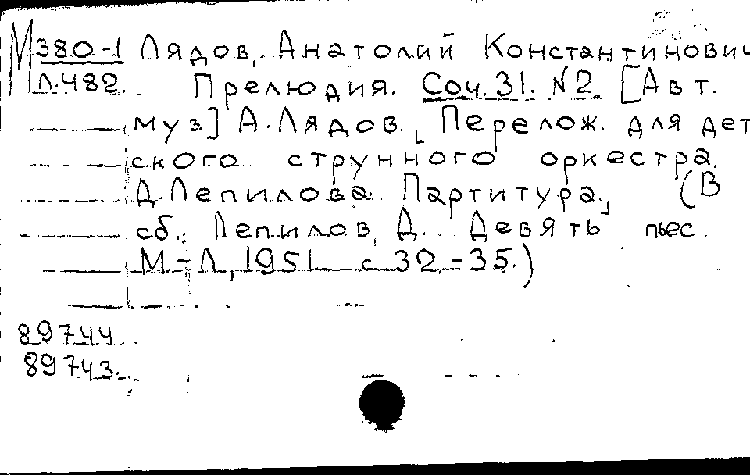 М380-1 Лядов, Анатолий Константинович
Л.482. Прелюдия. Соч. 31. №2. [Авт.
муз] А. Лядов. Перелож. для дет
ского струнного оркестра
Д. Лепилова. Партитура. (В
сб.: Лепилов, Д. Девять пьес.
М-Л, 1951 с 32-35.)
89744.
89743.